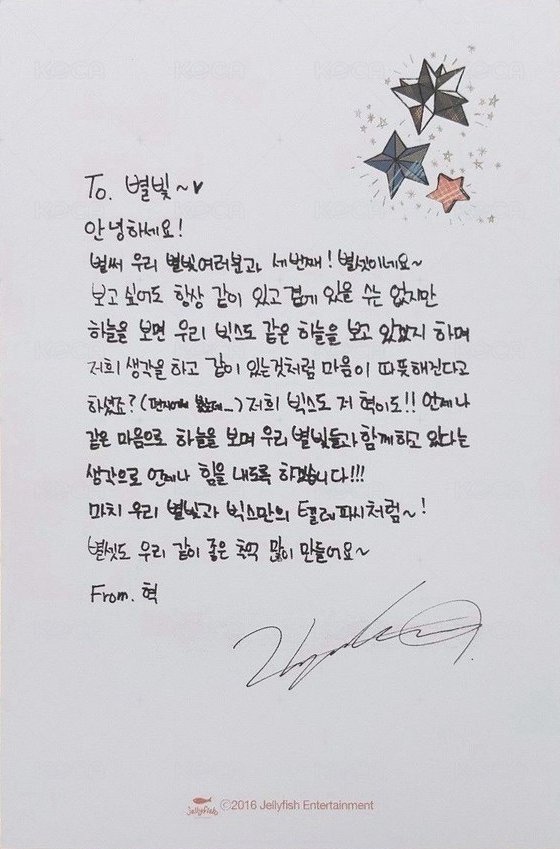 To. 별빛~♥
안녕하세요!
벌써 우리 별빛여러분과 세번째! 별셋이네요~
보고싶어도 항상 같이 있고 곁에 있을 수는 없지만
하늘을 보면 우리 빅스도 같은 하늘을 보고 있겠지 하며
저희 생각을 하고 같이 있는것처럼 마음이 따뜻해진다고
하셨죠? (편지에서 봤는데...) 저희 빅스도 저 혁이도!! 언제나
같은 마음으로 하늘을 보며 우리 별빛들과 함께하고 있다는
생각으로 언제나 힘을 내도록 하겠습니다!!!
마치 우리 별빛과 빅스만의 텔레파시처럼~!
별셋도 우리 같이 좋은 추억 많이 만들어요~
From. 혁
Jellyfish ©2016 Jellyfish Entertainment
KOCA